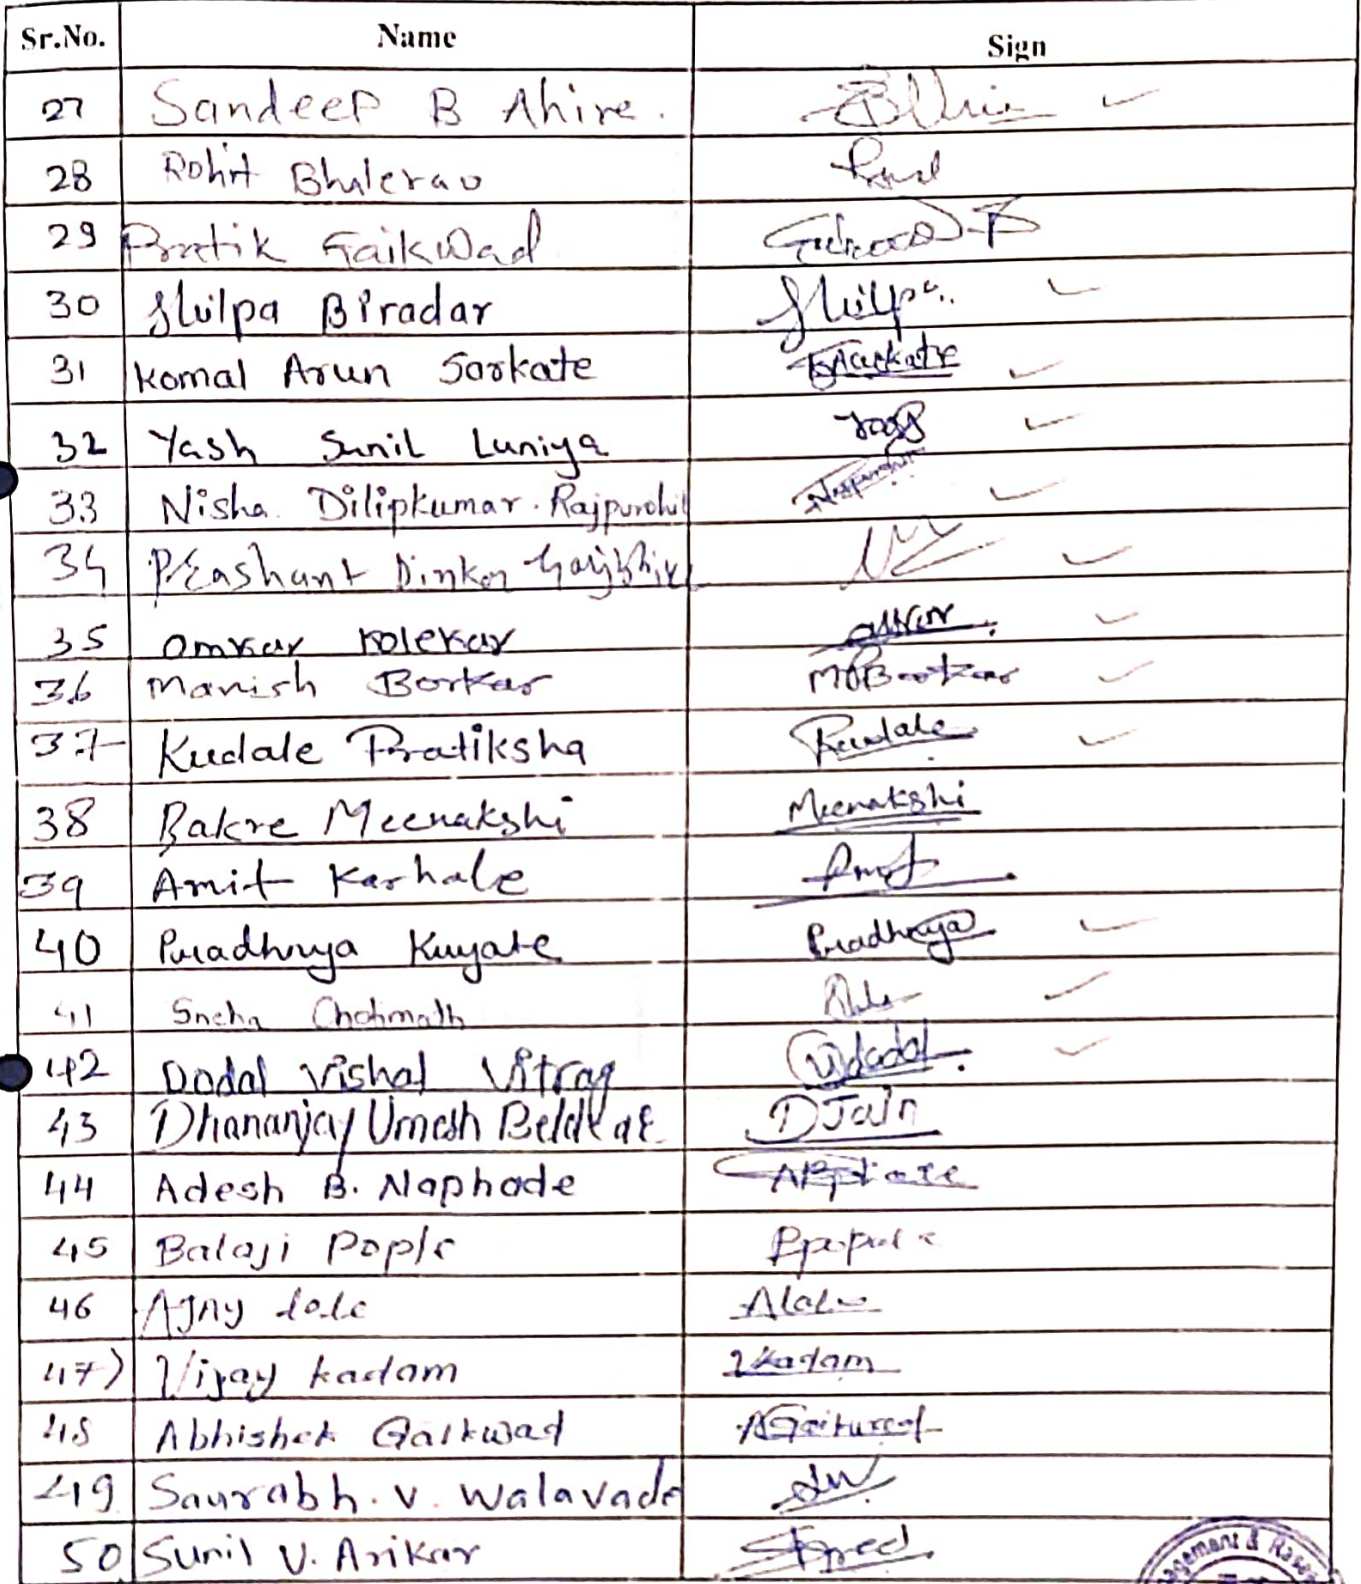 Sr.No. Name Sign
27 Sandeep B Ahire.
28 Rohit Bhalerao
29 Pratik Gaikwad
30 Shilpa Biradar Shilpa
31 Komal Arun Sarkate
32 Yash Sunil Luniya Yash
33 Nisha Dilipkumar. Rajpurohit
34 Prashant Dinkar
35 Omkar Kolekar
36 Manish Borkar
37 Kudale Pratiksha Kudale
38 Bakre Meenakshi Meenakshi
39 Amit Karhale Amit
40 Pradhnya Kuyate Pradhnya
41 Sneha
42 Dodal Vishal Vitrag
43 Dhananjay Umesh DJain
44 Adesh B. Naphade
45 Balaji Pople
46 Ajay lole
47) Vijay kadam Vkadam
48 Abhishek Gaikwad
49 Saurabh. V. Walavade
50 Sunil V. Arikar